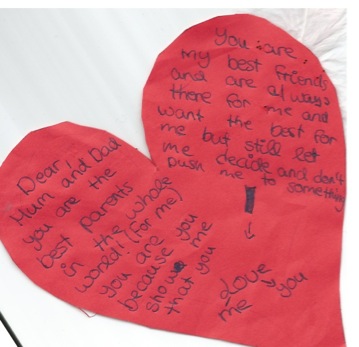 Dear Mum and Dad
you are the
best parents
in the whole
world! (for me)
you are you
because you me
show
that you
You are
my best friends
and are always
there for me and
want the best for
me but still let
me decide and don't
push me to something
Love you
me